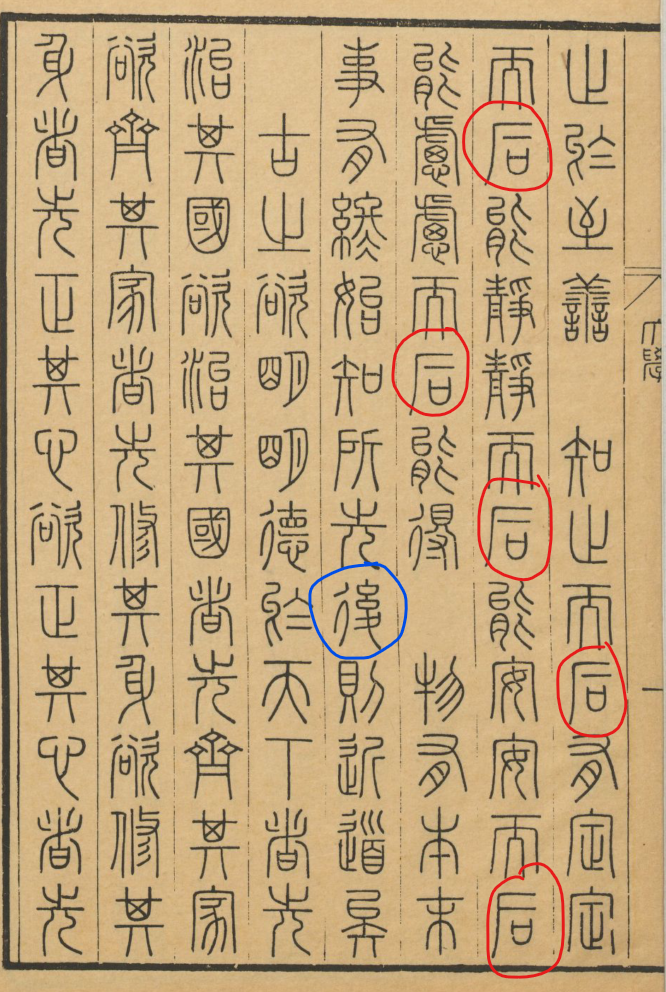 大學 一
止於至善 知止而后有定定
而后能靜靜而后能安安而后
能慮慮而后能得 物有本末
事有終始知所先後則近道矣
古之欲明明德於天下者先
治其國欲治其國者先齊其家
欲齊其家者先修其身欲修其
身者先正其心欲正其心者先